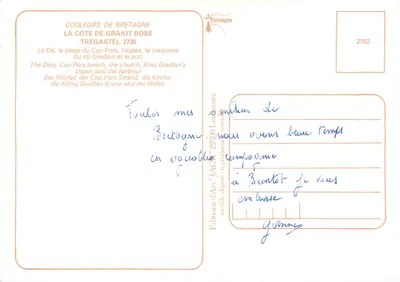 COULEURS DE BRETAGNE
LA COTE DE GRANIT ROSE
TREGASTEL 2730
Le Dé, la plage du Coz-Pors, l'église, la couronne
du roi Gradlon et le port
The Dice, Coz-Pors beach, the church, King Gradlon's
crown and the harbour
Der Würfel, der Coz-Pors Strand, die Kirche,
die König Gradlon Krone und der Hafen
Bretagne
2162
Toutes mes amitiés de
Bretagne nous avons beau temps
en agréable compagnie
à Bientôt je vous
embrasse
Yvonne
Edition d'Art "JACK"